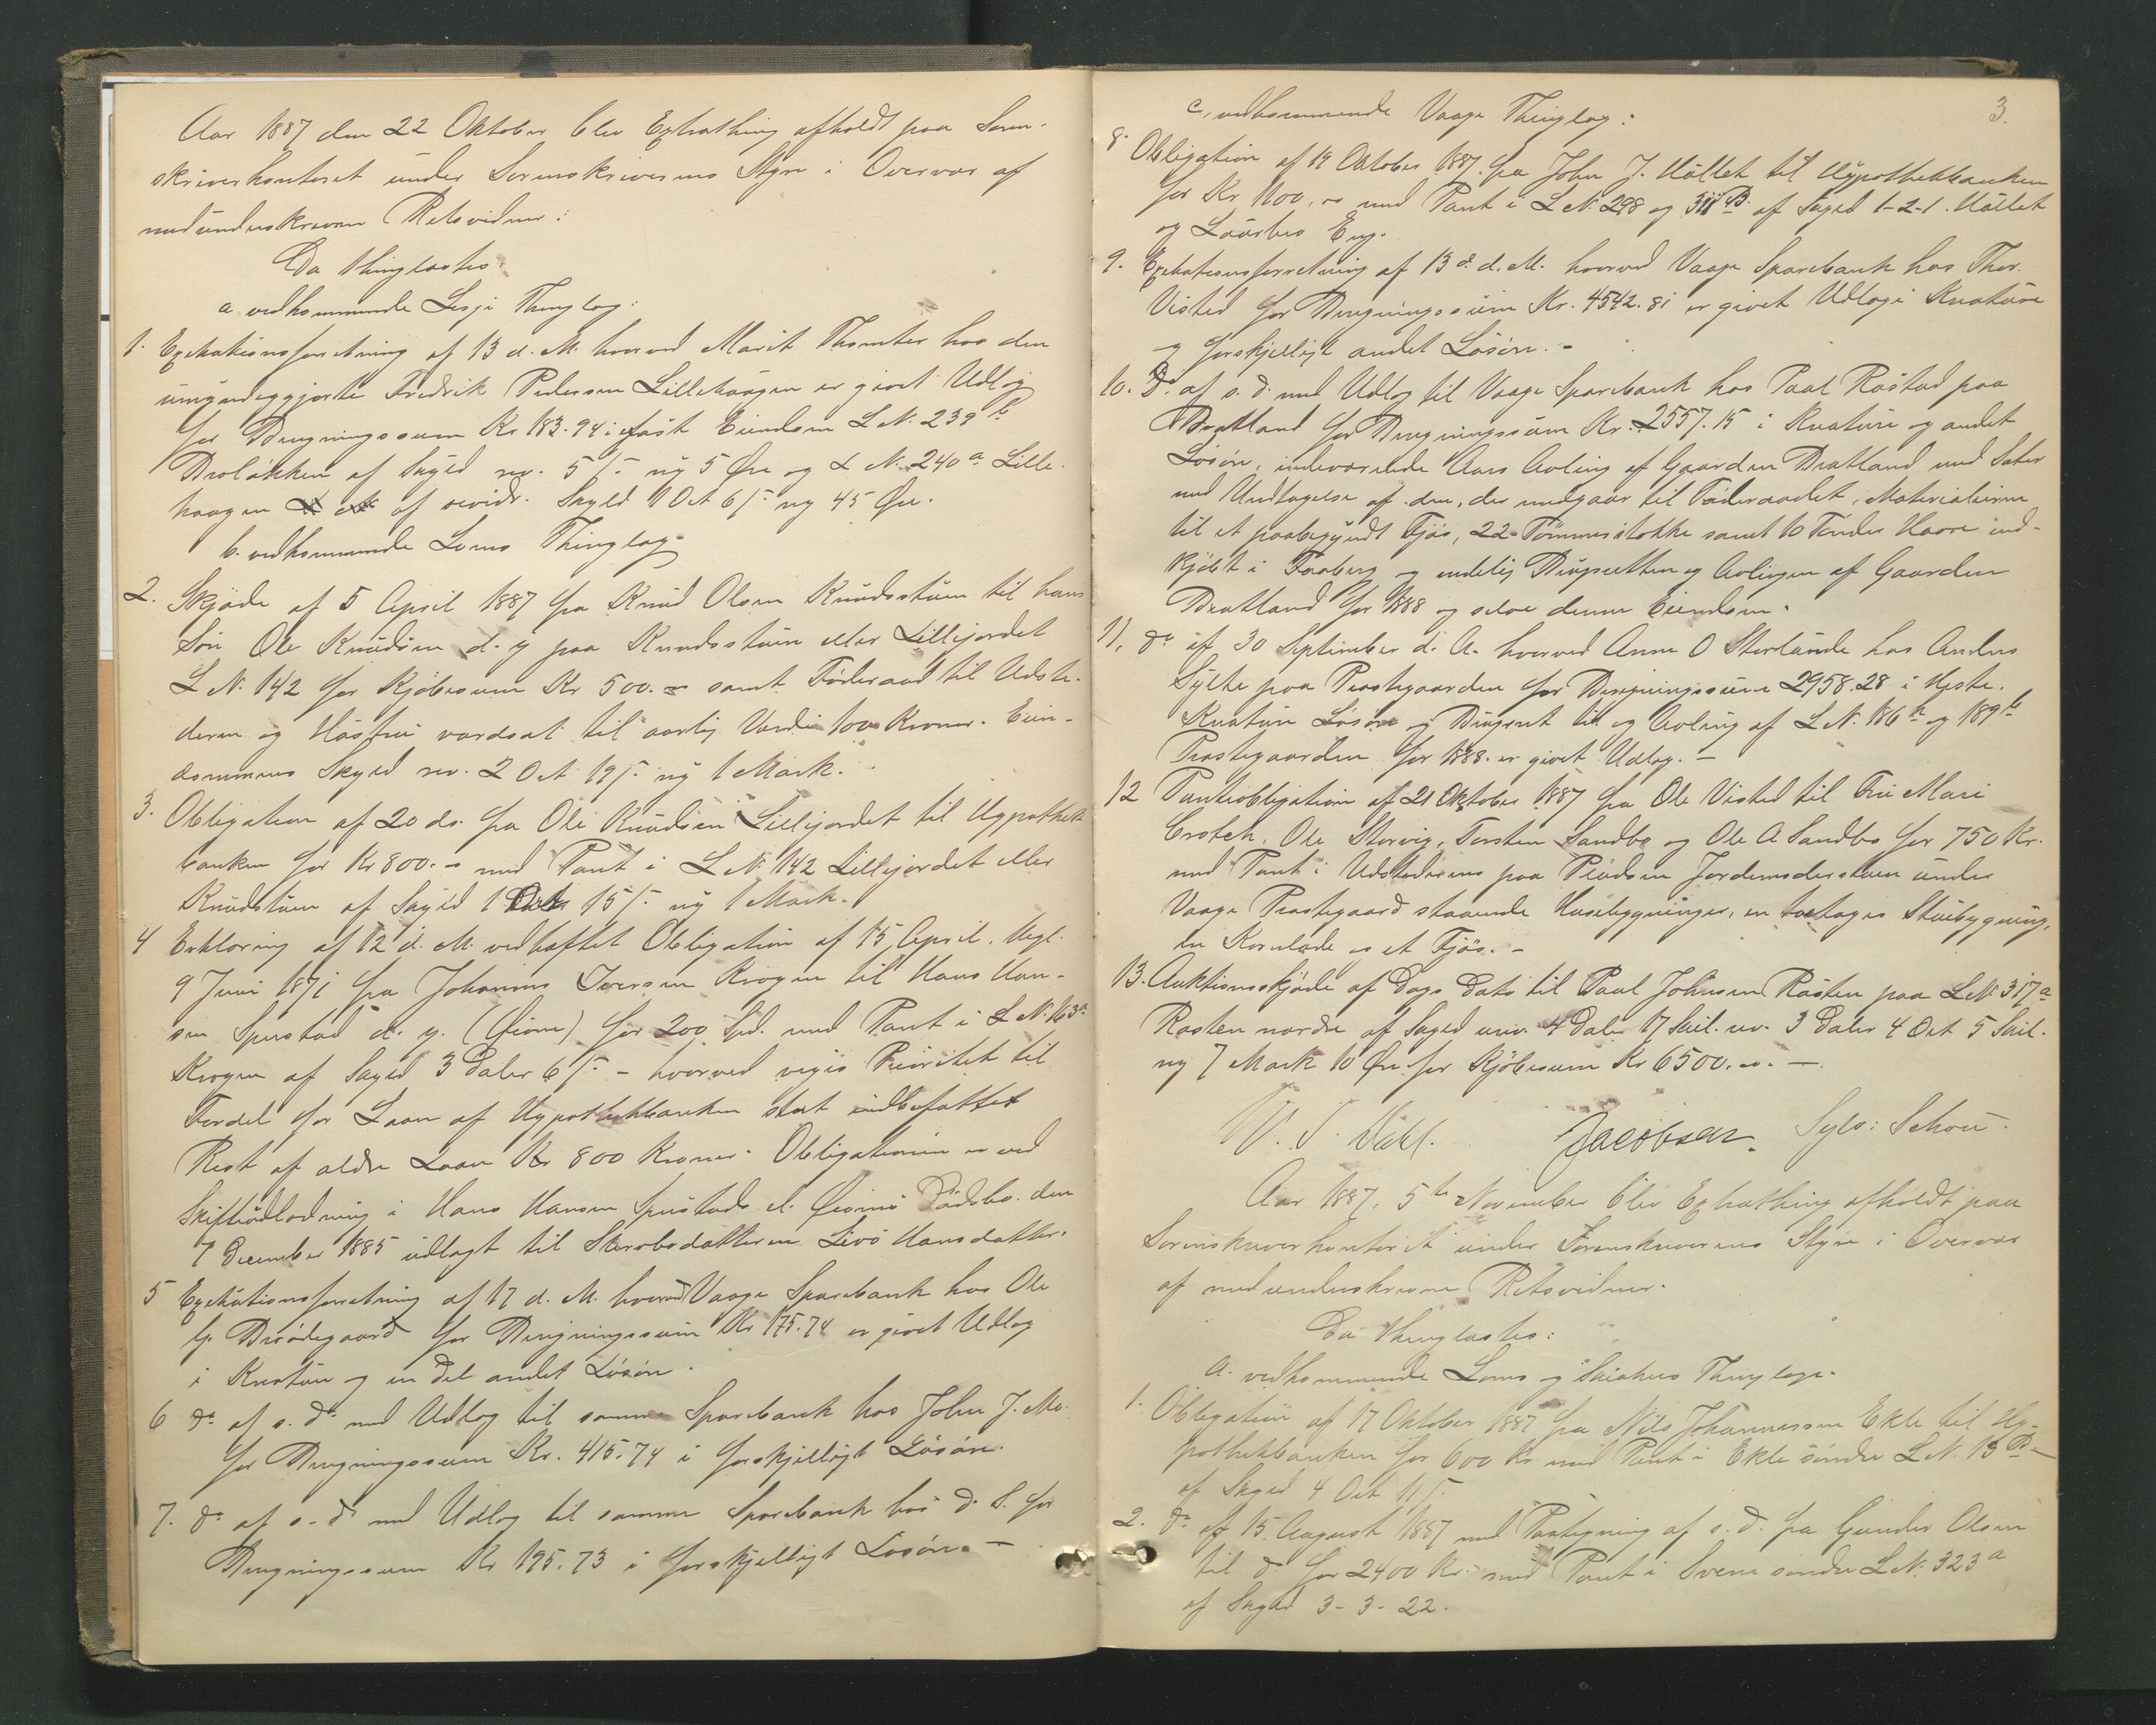 Aar 1887 den 22 Oktober blev Extrathing afholdt paa Soren-
skriverkontoret under Sorenskriverens Styre i Overvær af
nedunderskrevne Retsvidner:
Da thinglæstes:
a. vedkommende Lesje Thinglag:
1. Exekutionsforretning af 13 d. M. hvorved Marit Thomter hos den
umyndiggjorte Fredrik Pedersen Lillehaagen er givet Udlæg
for Dragningssum Kr 183.94 i fast Eiendom L N. 239 b
af Skyld rev. 5 ß ny 5 Øre og L N. 240 a Lille-
haagen af revidr. Skyld 1 Ort 6 ß ny 45 Øre.
b. vedkommende Loms Thinglag
2. Skjøde af 5 April 1887 fra Knud Olsen Knudsstuen til hans
Søn Ole Knudsen d. y paa Knudsstuen eller Lillejordet
L N. 142 for Kjøbesum Kr 500.- samt Føderaad til Udste-
deren og Hustru værdsat til aarlig Værdi 100 Kroner. Eien-
dommens Skyld rev. 2 Ort 19 ß ny 1 Mark.
3. Obligation af 20 ds. fra Ole Knudsen Lillejordet til Hypothek
banken for Kr 800.- med Pant i L N. 142 Lillejordet eller
Knudstuen af Skyld 1 Ort 15 ß ny 1 Mark.
4 Erklæring af 12 d. M. vedhæftet Obligation af 15 April, thgl.
9 Juni 1871 fra Johannes Iversen Krogen til Hans Han-
sen Sperstad d. y. (Øione) for 200 Spd. med Pant i L N. 163 a
Krogen af Skyld 3 Daler 6 ß - hvorved viges Prioritet til
Fordel for Laan af Hypothekbanken stort indbefattet
Rest af ældre Laan Kr 800 Kroner. Obligationen er ved
Skifteudlodning i Hans Hansen Sperstads el. Øiones Dødsbo den
7 December 1885 udlagt til Livø Hansdatter.
5 Exekutionsforretning af 17 d. M. hvorved Vaage Sparebank hos Ole
for Dragningssum Kr 175.74 er givet Udlæg
i Kreature og en Del andet Løsøre.
6 do af s. d. med Udlæg til samme Sparebank hos John J. Mo
for Dragningssum Kr. 415.74 i forskjelligt Løsøre.
7. do af s. d. med Udlæg til samme Sparebank hos d. S. for
Dragningssum Kr 195.73 i forskjelligt Løsøre. -
3.
c, vedkommende Vaage Thinglag:
8. Obligation af 19 Oktober 1887 fra John J. til Hypothekbanken
for Kr 1100.- med Pant i L N. 298 og 311 B. af Skyld 1-2-1.
og Eng.
9. Exekutionsforretning af 13 d. M. hvorved Vaage Sparebank hos Thor
Visted for Dragningssum Kr. 4542.81 er givet Udlæg i Kreature
og forskjelligt andet Løsøre. -
10. do af s. d. med Udlæg til Vaage Sparebank hos Paal Rustad paa
Bratland for Dragningssum Kr. 2557.15 i Kreature og andet
Løsøre, indeværende Aars Avling af Gaarden Bratland med Sæter
med Undtagelse af den, der medgaar til Føderaadet, Materialierne
til et paabegyndt Fjøs, 22 Tømmerstokke samt 10 Tønder Havre ind-
kjøbt i Faaberg og endelig Brugsretten og Avlingen af Gaarden
Bratland for 1888 og selve denne Eiendom.
11, do af 30 September d. A. hvorved Anne O Storlunde hos Anders
Sylte paa Præstegaarden for Dragningssum 2958.28 i Heste,
Kreature Løsøre og Brugsret til og Avling af L N. 186 b og 189 b
Præstegaarden for 1888 er givet Udlæg. -
12 Panteobligation af 21 Oktober 1887 fra Ole Visted til Fru Mari
Ole Storvig, Torsten Sandbo og Ole A Sandbo for 750 Kr.
med Pant i Udstederens paa Pladsen Jordemoderstuen under
Vaage Præstegaard staaende Husebygninger, en toetages Stuebygning,
en Kornlade og et Fjøs. -
13. Auktionsskjøde af Dags Dato til Paul Johnsen Rusten paa L N. 317 a
Rusten nordre af Skyld urev. 4 Daler 17 Skil. rev. 3 Daler 4 Ort 5 Skil.
ny 7 Mark 10 Øre for Kjøbesum Kr 6500.-. -
Jacobsen. Sylv: Schou.
Aar 1887, 5te November blev Extrathing afholdt paa
Sorenskriverkontoret under Sorenskriverens Styre i Overvær
af nedunderskrevne Retsvidner.
Da thinglæstes:
a. vedkommende Loms og Skiakers Thinglage.
1. Obligation af 17 Oktober 1887 fra Nils Johannessen Ekle til Hy-
pothekbanken for 600 Kr. med Pant i Ekle søndre L N. 13 B
af Skyld 4 Ort 11 ß.
2. do af 15 August 1887 med Paategning af s. d. fra Gunder Olsen
til do for 2400 Kr. med Pant i Svene søndre L N. 323 a
af Skyld 3-3-22.